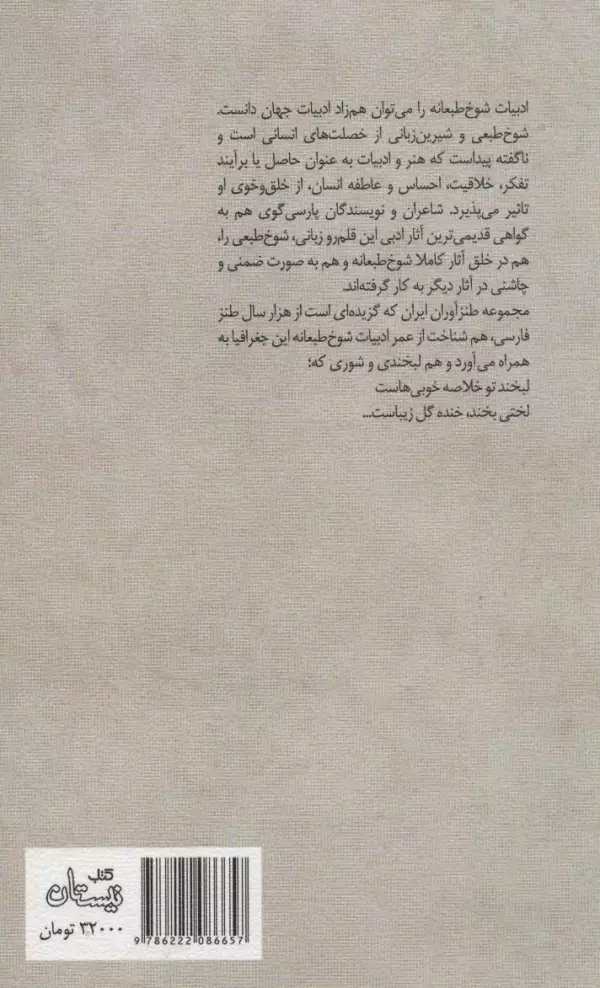 ادبیات شوخ‌طبعانه را می‌توان هم‌زاد ادبیات جهان دانست.
شوخ‌طبعی و شیرین‌زبانی از خصلت‌های انسانی است و
ناگفته پیداست که هنر و ادبیات به عنوان حاصل یا برآیند
تفکر، خلاقیت، احساس و عاطفه انسان، از خلق‌وخوی او
تاثیر می‌پذیرد. شاعران و نویسندگان پارسی‌گوی هم به
گواهی قدیمی‌ترین آثار ادبی این قلم‌رو زبانی، شوخ‌طبعی را،
هم در خلق آثار کاملا شوخ‌طبعانه و هم به صورت ضمنی و
چاشنی در آثار دیگر به کار گرفته‌اند.
مجموعه طنزآوران ایران که گزیده‌ای است از هزار سال طنز
فارسی، هم شناخت از عمر ادبیات شوخ‌طبعانه این جغرافیا به
همراه می‌آورد و هم لبخندی و شوری که؛
لبخند تو خلاصه خوبی‌هاست
لختی بخند، خنده گل زیباست...
کتاب
نیستان
۳۲۰۰۰ تومان
9 786222 086657